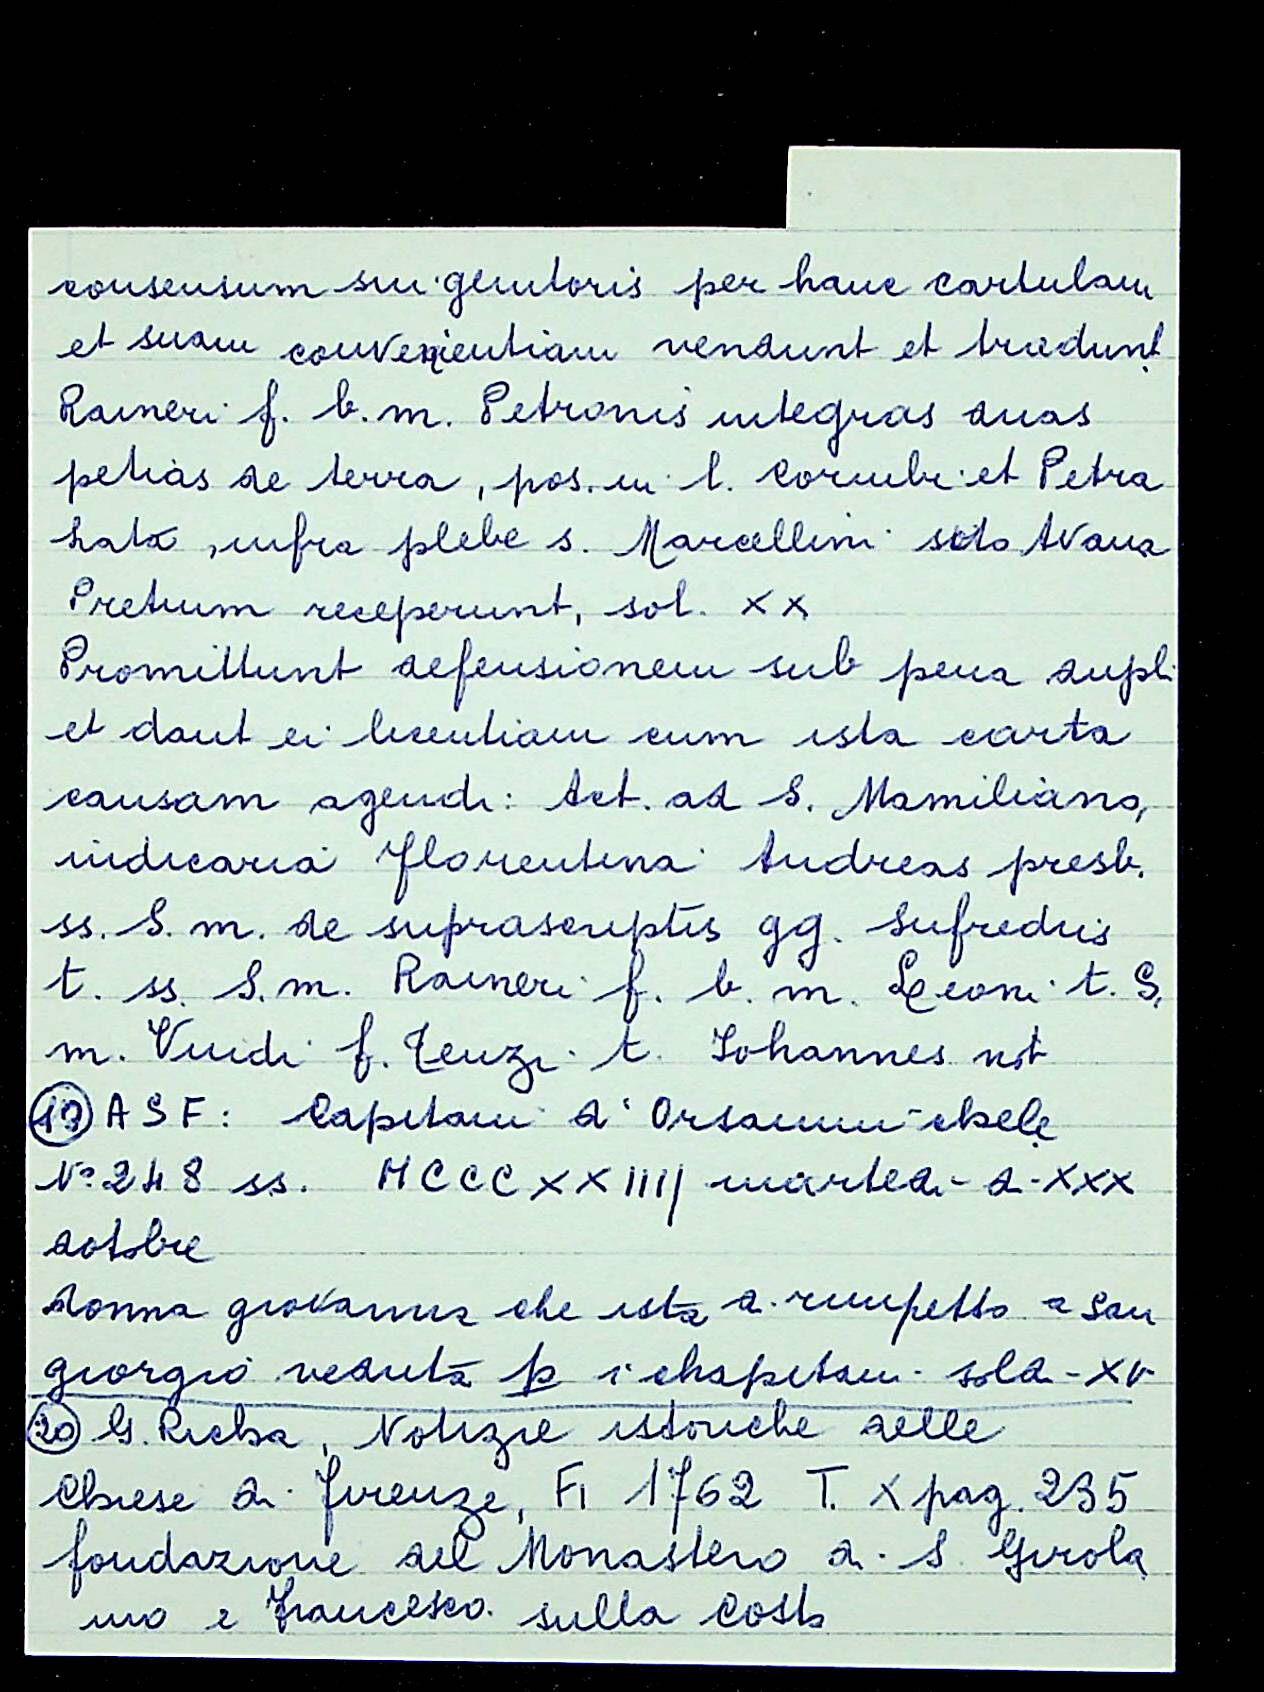 consensum sui genitoris per hanc cartulam
et suam convenientiam vendunt et tradunt
Raineri f. b. m. Petronis integras duas
petias de terra, pos. in l. Cornubi et Petra
lata, infra plebe s. Marcellini sito Avana
Pretium receperunt, sol. XX
Promittunt defensionem sub pena dupli
et dant ei licentiam cum ista carta
causam agendi: Act. ad S. Mamiliano,
iudicaria florentina Andreas presb.
ss. S. m. de suprascriptis gg. Sufredus
t. ss. S. m. Raineri f. b. m. Leoni t. S.
m. Vuidi f. Teuzi t. Johannes not
19 ASF: Capitani d'Orsanmichele
N° 248 ss. MCCCXXIIIJ martedi-d-XXX
dotobre
donna giovanna che istà di rimpetto a San
giorgio veduta p i chapitani sold-XV
20 G. Richa, Notizie istoriche delle
Chiese di Firenze, Fi 1762 T. X pag. 235
fondazione del Monastero di S. Girola
mo e Francesco sulla Costa